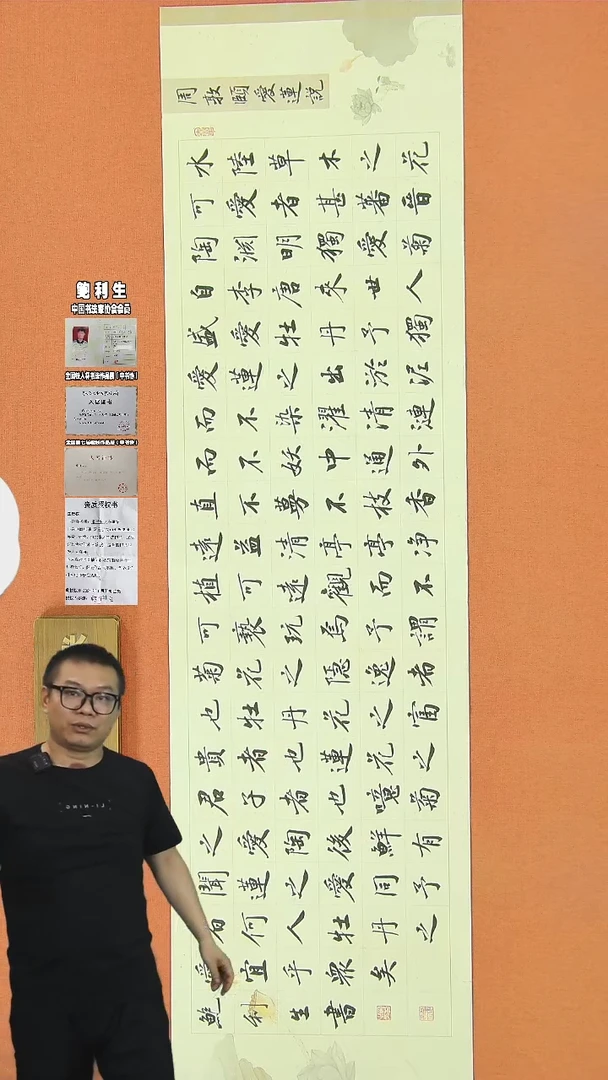 周敦頤愛蓮說
水陸草木之花
可愛者甚蕃晉
陶淵明獨愛菊
自李唐來世人
盛愛牡丹予獨
愛蓮之出淤泥
而不染濯清漣
而不妖中通外
直不蔓不枝香
遠益清亭亭淨
植可遠觀而不
可褻玩焉予謂
菊花之隱逸者
也牡丹花之富
貴者也蓮花之
君子者也噫菊
之愛陶後鮮有
聞蓮之愛同予
者何人牡丹之
愛宜乎眾矣
鮑利生書
鲍利生
中国书法家协会会员